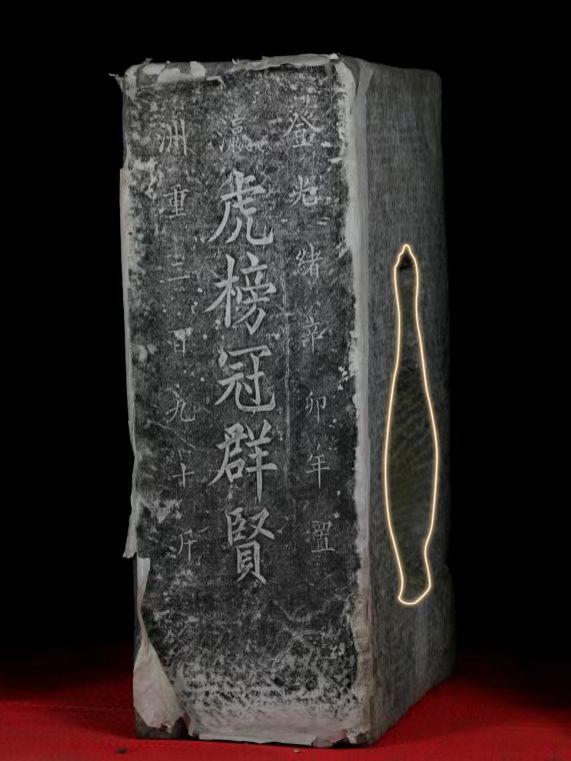 登瀛洲
光緒辛卯年置
虎榜冠群賢
重二百九十斤